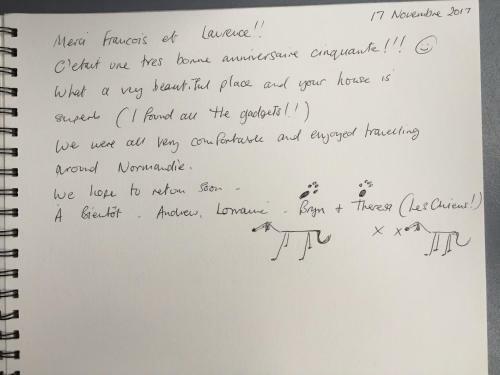 17 Novembre 2017
Merci Francois et Laurence!!
C'etait une tres bonne anniversaire cinquante!!!
What a very beautiful place and your house is
superb (I found all the gadgets!!)
We were all very comfortable and enjoyed travelling
around Normandie.
We hope to return soon -
À bientôt. Andrew, Lorraine - Bryn + Theresa (Les Chiens!)
x x